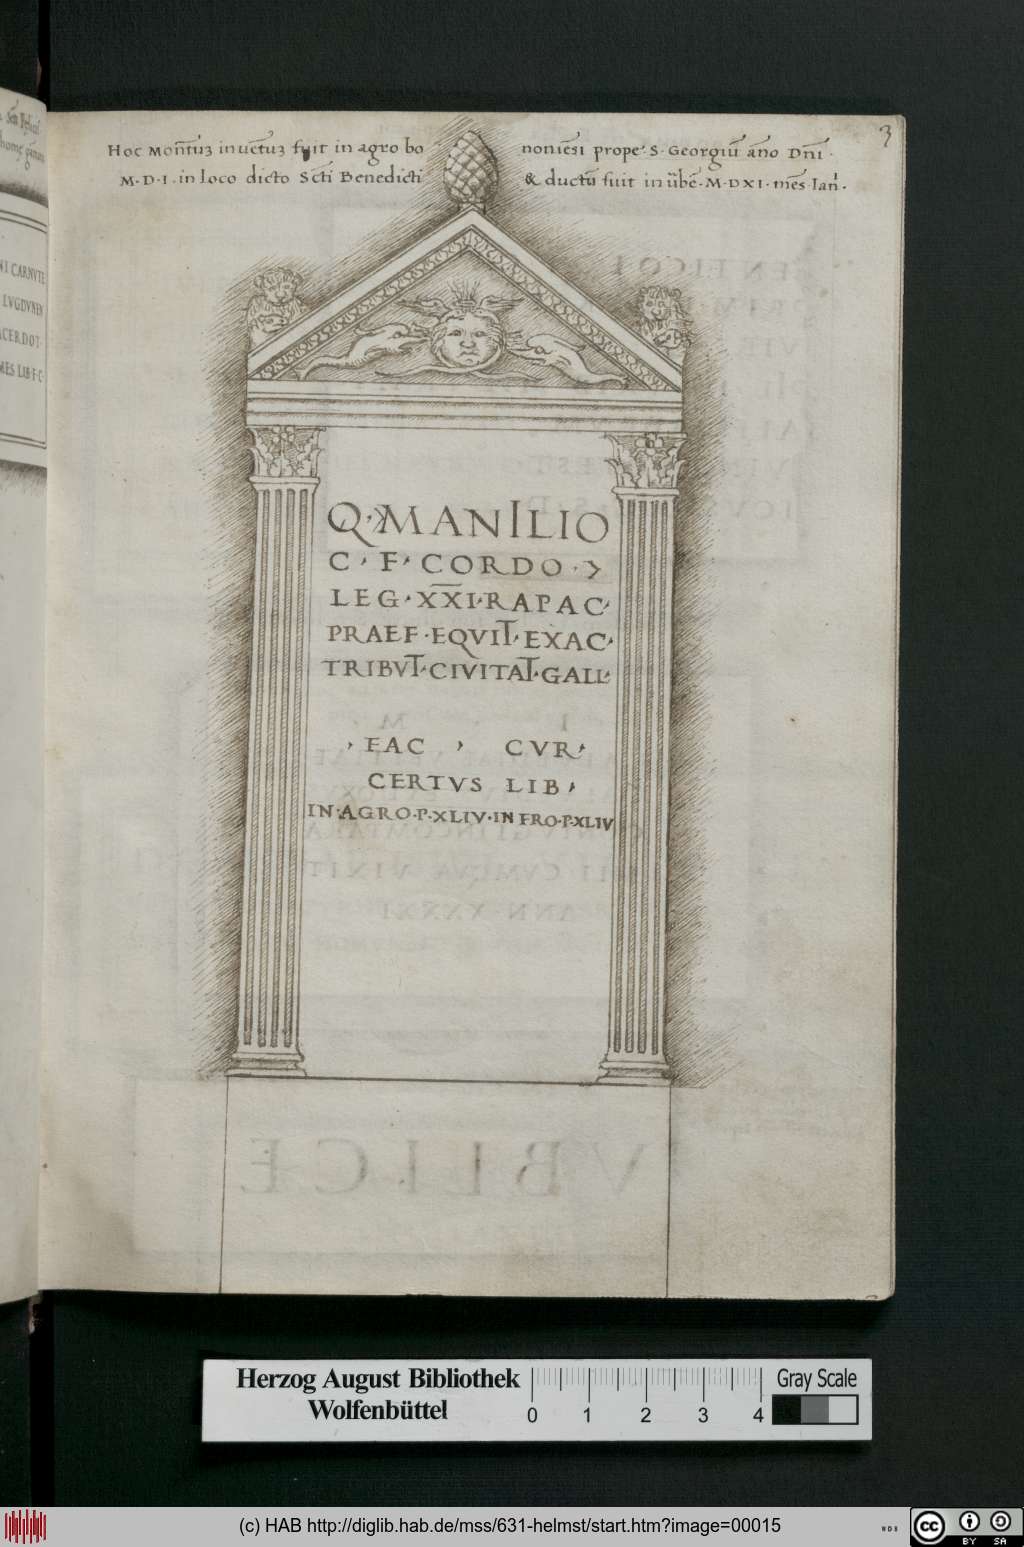 3
Hoc Monm̄tuʒ inuētuʒ fuit in agro bo noniēsi prope S. Georgiū āno Dn̄i.
M.D.I. in loco dicto Scti Benedicti & ductū fuit in ūbē. M.DXI. mēs Ian̄.
NI CARNVTE
LVGDVNEN
Q. MANILIO
C, F, CORDO. >
LEG, XXI. RAPAC,
PRAEF. EQVIT, EXAC,
TRIBVT. CIVITAT. GALL,
, FAC , CVR,
CERTVS LIB,
IN. AGRO. P. XLIV. IN FRO. P. XLIV
Herzog August Bibliothek
Wolfenbüttel
0 1 2 3 4
Gray Scale
(c) HAB http://diglib.hab.de/mss/631-helmst/start.htm?image=00015
WDB
cc BY SA